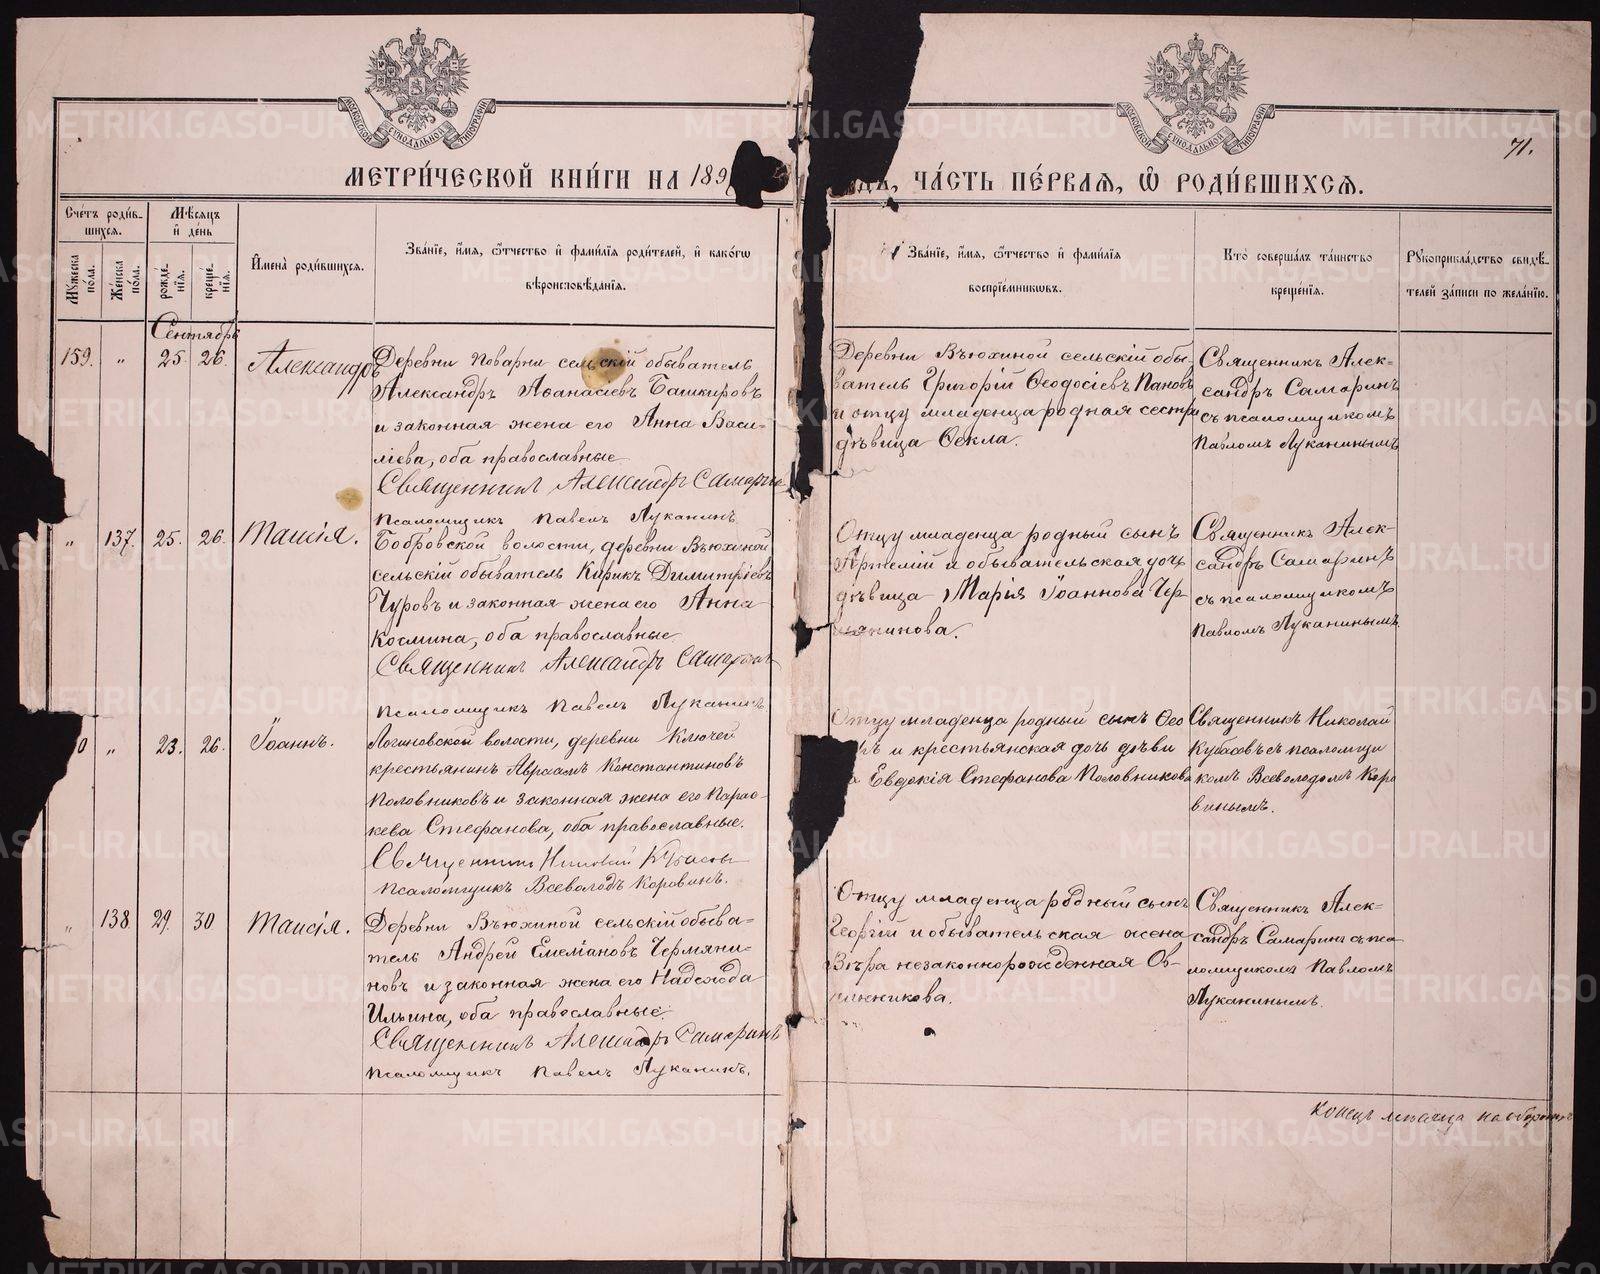 МОСКОВСКОЙ СѴНОДАЛЬНОЙ ТИПОГРАФІИ
МОСКОВСКОЙ СѴНОДАЛЬНОЙ ТИПОГРАФІИ
71.
МЕТРИ́ЧЕСКОЙ КНИ́ГИ НА 189
ЧА́СТЬ ПЕ́РВАЯ, Ѡ РОДИ́ВШИХСЯ.
Сче́тъ роди́в-
шихся.
Му́жеска по́ла.
Же́нска по́ла.
Мѣ́сяцъ
и҆ де́нь
рожде́нїя.
креще́нїя.
И҆мена̀ роди́вшихся.
Зва́нїе, и҆́мя, ѻ҆́тчество и҆ фами́лїя роди́телей, и҆ како́гѡ
вѣроисповѣ́данїя.
Зва́нїе, и҆́мя, ѻ҆́тчество и҆ фами́лїя
воспрїе́мникѡвъ.
Кто̀ соверша́лъ та́инство
креще́нїя.
Рꙋкоприкла́дство свидѣ́-
телей за́писи по жела́нїю.
Сентябрь
159. " 25. 26. Александръ
Деревни Поварни сельскій обыватель
Александръ Аѳанасіевъ Башкировъ
и законная жена его Анна Васи-
ліева, оба православные
Священникъ Александръ Самаринъ
Псаломщикъ Павелъ Луканинъ.
Деревни Вьюхиной сельскій обы-
ватель Григорій Ѳеодосіевъ Пановъ
и отцу младенца родная сестра
дѣвица Ѳекла.
Священникъ Алек-
сандръ Самаринъ
съ псаломщикомъ
Павломъ Луканинымъ
" 137. 25. 26. Таисія.
Бобровской волости, деревни Вьюхиной
сельскій обыватель Кирикъ Димитріевъ
Чуровъ и законная жена его Анна
Космина, оба православные
Священникъ Александръ Самаринъ
Псаломщикъ Павелъ Луканинъ
Отцу младенца родный сынъ
Артемій и обывательская дочь
дѣвица Марія Іоаннова Чер
Священникъ Алек-
сандръ Самаринъ
съ псаломщикомъ
Павломъ Луканинымъ.
0 " 23. 26. Іоаннъ.
Логиновской волости, деревни Ключей
крестьянинъ Авраамъ Константиновъ
Половниковъ и законная жена его Парас-
кева Стефанова, оба православные.
Священникъ Николай Кубасовъ
Псаломщикъ Всеволодъ Коровинъ.
Отцу младенца родный сынъ Ѳео
ръ и крестьянская дочь дѣви
а Евдокія Стефанова Половникова
Священникъ Николай
Кубасовъ съ псаломщи
комъ Всеволодомъ Коро
винымъ.
" 138. 29. 30 Таисія.
Деревни Вьюхиной сельскій обыва-
тель Андрей Емеліановъ Чермяни-
новъ и законная жена его Надежда
Ильина, оба православные.
Священникъ Александръ Самаринъ
Псаломщикъ Павелъ Луканинъ.
Отцу младенца родный сынъ
Георгій и обывательская жена
Вѣра незаконнорожденная Ов-
чинникова.
Священникъ Алек-
сандръ Самаринъ съ пса
ломщикомъ Павломъ
Луканинымъ.
Конецъ мѣсяца на оборотѣ
METRIKI.GASO-URAL.RU